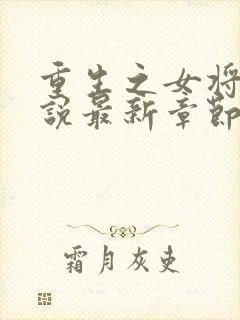 重生之女将
說最新章節
霜月灰吏